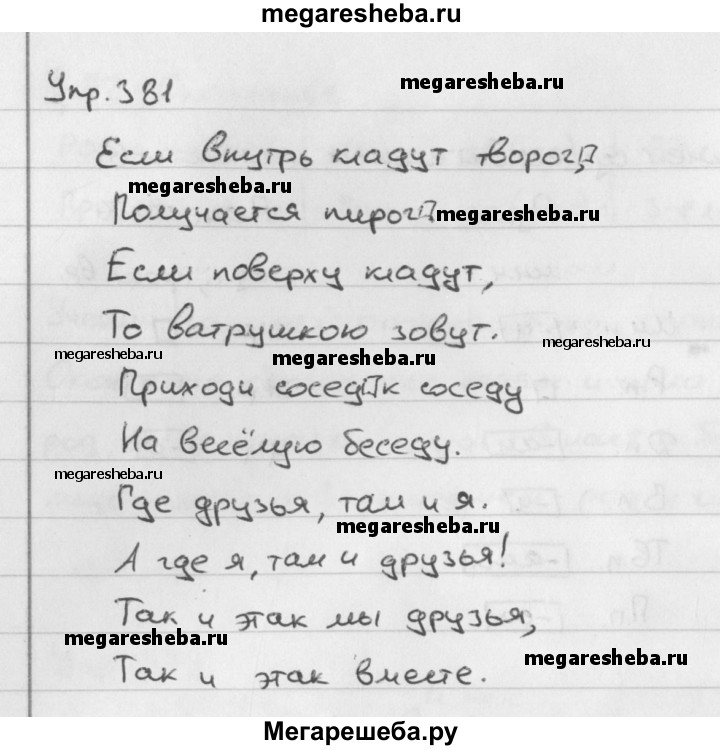 megaresheba.ru
Упр. 381
megaresheba.ru
Если внутрь кладут творог,
megaresheba.ru
Получается пирог.
megaresheba.ru
Если поверху кладут,
То ватрушкою зовут.
megaresheba.ru
megaresheba.ru
megaresheba.ru
Приходи сосед к соседу
На весёлую беседу.
megaresheba.ru
Где друзья, там и я.
megaresheba.ru
А где я, там и друзья!
Так и этак мы друзья,
megaresheba.ru
Так и этак вместе.
megaresheba.ru
Мегарешеба.ру